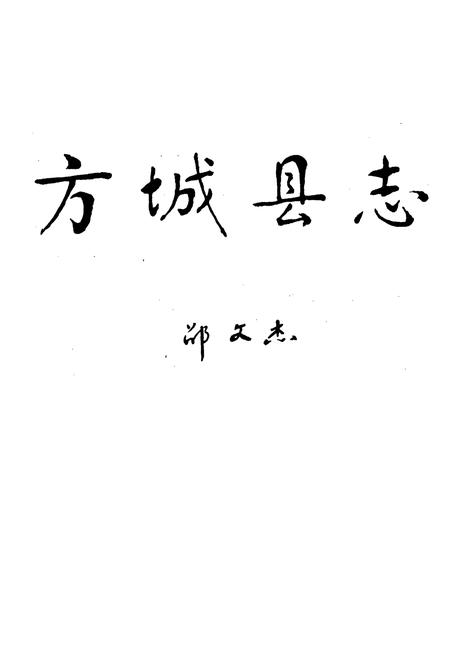 方城县志
邵文杰